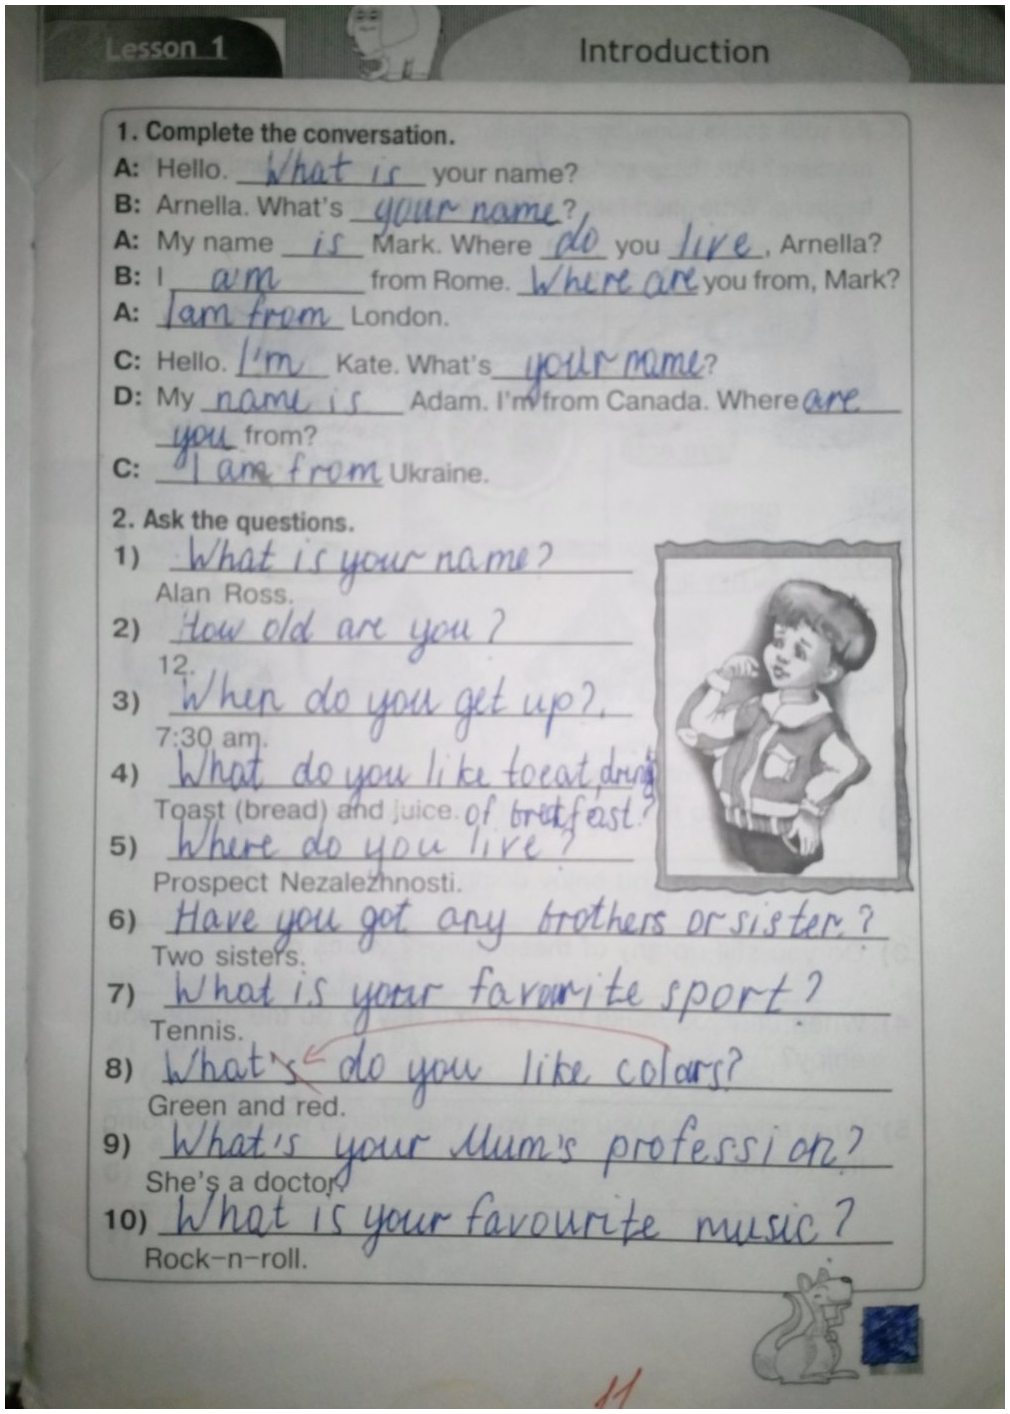 Lesson 1
Introduction
1. Complete the conversation.
A: Hello. What is your name?
B: Arnella. What's your name?
A: My name is Mark. Where do you live, Arnella?
B: I am from Rome. Where are you from, Mark?
A: I am from London.
C: Hello. I'm Kate. What's your name?
D: My name is Adam. I'm from Canada. Where are
you from?
C: I am from Ukraine.
2. Ask the questions.
1) What is your name?
Alan Ross.
2) How old are you?
12.
3) When do you get up?.
7:30 am.
4) What do you like to eat, drink
Toast (bread) and juice. of brekfast?
5) Where do you live?
Prospect Nezalezhnosti.
6) Have you got any brothers or sister?
Two sisters.
7) What is your favourite sport?
Tennis.
8) What's do you like colars?
Green and red.
9) What's your Mum's profession?
She's a doctor.
10) What is your favourite music?
Rock-n-roll.
11